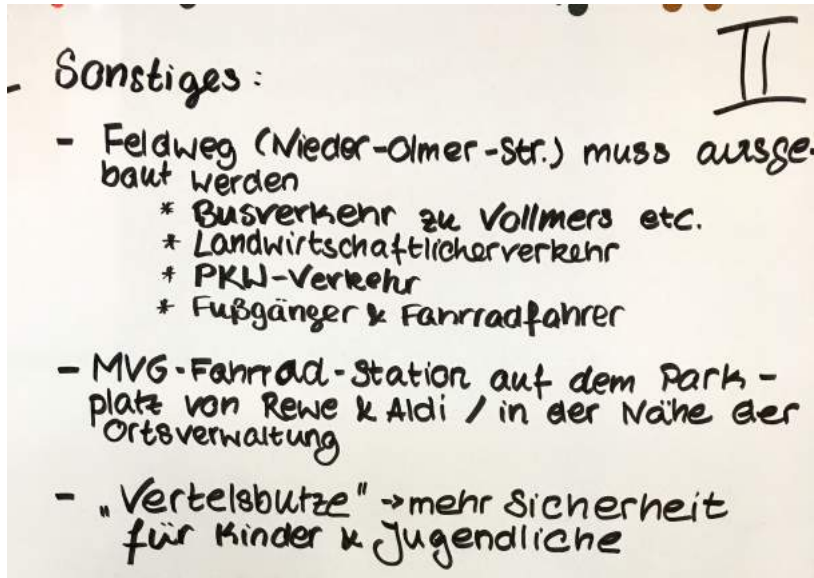 II
Sonstiges:
- Feldweg (Nieder-Olmer-Str.) muss ausge-
baut werden
* Busverkehr zu Vollmers etc.
* Landwirtschaftlicherverkehr
* PKW-Verkehr
* Fußgänger & Fahrradfahrer
- MVG-Fahrrad-Station auf dem Park-
platz von Rewe & Aldi / in der Nähe der
Ortsverwaltung
- „Vertelsbutze" → mehr Sicherheit
für Kinder & Jugendliche